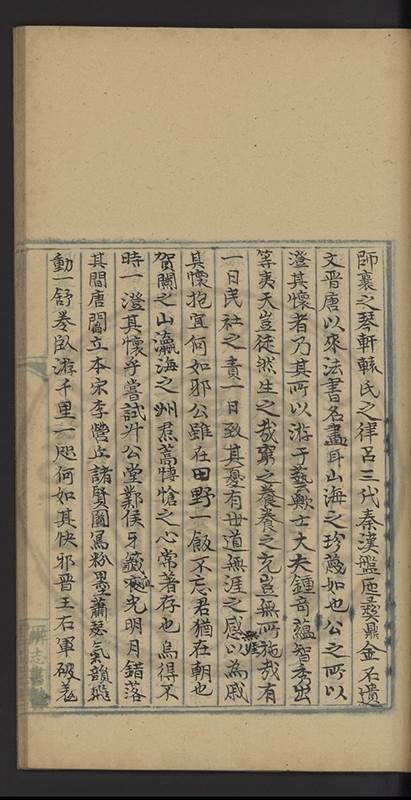 師襄之琴軒轅氏之律呂三代秦漢盤匜彝鼎金石遺
文晉唐以來法書名畫耳山海之珍蔑如也公之所以
澄其懷者乃其所以游于藝歟士大夫鍾奇蘊智秀出
等夷天豈徒然生之哉窮之養養之充豈無所施哉有
一日民社之責一日致其憂有世道無涯之感以為戚
其懷抱宜何如邪公雖在田野一飯不忘君猶在朝也
賀蘭之山瀛海之州焄蒿悽愴之心常著存也烏得不
時一澄其懷乎嘗試升公堂鄴侯牙籤光明月錯落
其間唐閻立本宋李營丘諸賢圖寫粉墨蕭瑟氣韻飛
動一舒卷臥游千里一咫何如其快邪晉王右軍破羗